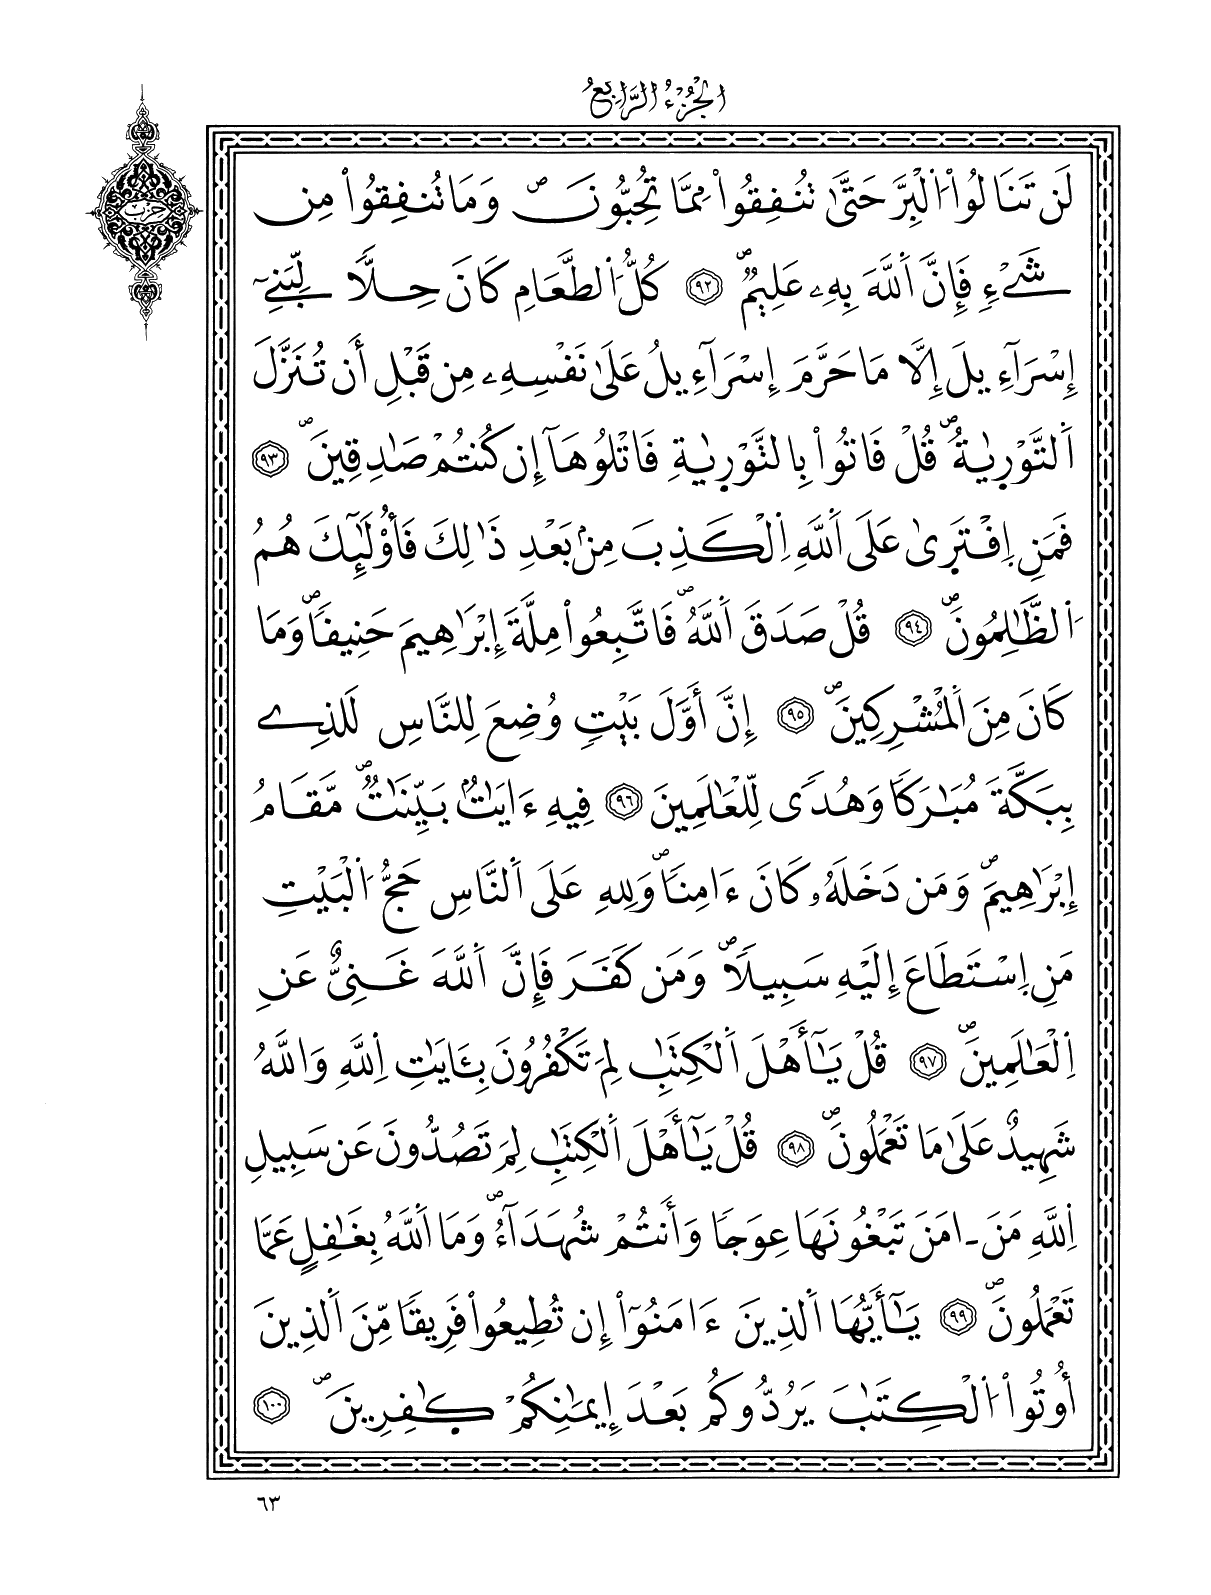 الجزء الرابع
حزب
لَن تَنَالُوا۟ اُ۬لْبِرَّ حَتَّىٰ تُنفِقُوا۟ مِمَّا تُحِبُّونَۖ وَمَا تُنفِقُوا۟ مِن
شَےْءٖ فَإِنَّ اَ۬للَّهَ بِهِۦ عَلِيمٞۖ ٩٢ كُلُّ اُ۬لطَّعَامِ كَانَ حِلّاٗ لِّبَنِےٓ
إِسْرَآءِيلَ إِلَّا مَا حَرَّمَ إِسْرَآءِيلُ عَلَىٰ نَفْسِهِۦ مِن قَبْلِ أَن تُنَزَّلَ
اَ۬لتَّوْر۪ىٰةُۖ قُلْ فَاتُوا۟ بِالتَّوْر۪ىٰةِ فَاتْلُوهَآ إِن كُنتُمْ صَٰدِقِينَۖ ٩٣
فَمَنِ اِ۪فْتَر۪ىٰ عَلَى اَ۬للَّهِ اِ۬لْكَذِبَ مِنۢ بَعْدِ ذَٰلِكَ فَأُو۟لَٰٓئِكَ هُمُ
اُ۬لظَّٰلِمُونَۖ ٩٤ قُلْ صَدَقَ اَ۬للَّهُۖ فَاتَّبِعُوا۟ مِلَّةَ إِبْرَٰهِيمَ حَنِيفاٗۖ وَمَا
كَانَ مِنَ اَ۬لْمُشْرِكِينَۖ ٩٥ إِنَّ أَوَّلَ بَيْتٖ وُضِعَ لِلنَّاسِ لَلذِے
بِبَكَّةَ مُبَٰرَكاٗ وَهُدىٗ لِّلْعَٰلَمِينَ ٩٦ فِيهِ ءَايَٰتُۢ بَيِّنَٰتٞۖ مَّقَامُ
إِبْرَٰهِيمَۖ وَمَن دَخَلَهُۥ كَانَ ءَامِناٗۖ وَلِلهِ عَلَى اَ۬لنَّاسِ حَجُّ اُ۬لْبَيْتِ
مَنِ اِ۪سْتَطَاعَ إِلَيْهِ سَبِيلاٗۖ وَمَن كَفَرَ فَإِنَّ اَ۬للَّهَ غَنِيٌّ عَنِ
اِ۬لْعَٰلَمِينَۖ ٩٧ قُلْ يَٰٓأَهْلَ اَ۬لْكِتَٰبِ لِمَ تَكْفُرُونَ بِـَٔايَٰتِ اِ۬للَّهِ وَاللَّهُ
شَهِيدٌ عَلَىٰ مَا تَعْمَلُونَۖ ٩٨ قُلْ يَٰٓأَهْلَ اَ۬لْكِتَٰبِ لِمَ تَصُدُّونَ عَن سَبِيلِ
اِ۬للَّهِ مَنَ ـ امَنَ تَبْغُونَهَا عِوَجاٗ وَأَنتُمْ شُهَدَآءُۖ وَمَا اَ۬للَّهُ بِغَٰفِلٍ عَمَّا
تَعْمَلُونَۖ ٩٩ يَٰٓأَيُّهَا اَ۬لذِينَ ءَامَنُوٓا۟ إِن تُطِيعُوا۟ فَرِيقاٗ مِّنَ اَ۬لذِينَ
أُوتُوا۟ اُ۬لْكِتَٰبَ يَرُدُّوكُم بَعْدَ إِيمَٰنِكُمْ كَٰفِرِينَۖ ١٠٠
٦٣